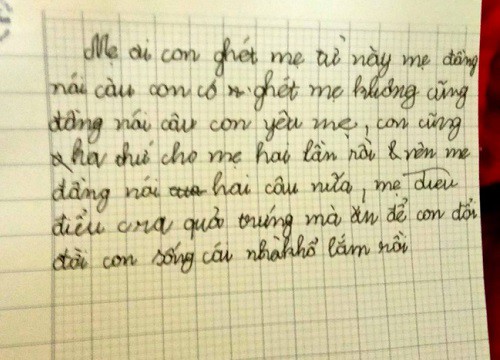 Mẹ ơi con ghét mẹ từ này mẹ đừng
nói câu con có ghét mẹ không cũng
đừng nói câu con yêu mẹ, con cũng
tha thứ cho mẹ hai lần rồi & nên mẹ
đừng nói hai câu nữa, mẹ
điểu cra quả trưng mà ăn để con đổi
đời con sống cái nhà khổ lắm rồi